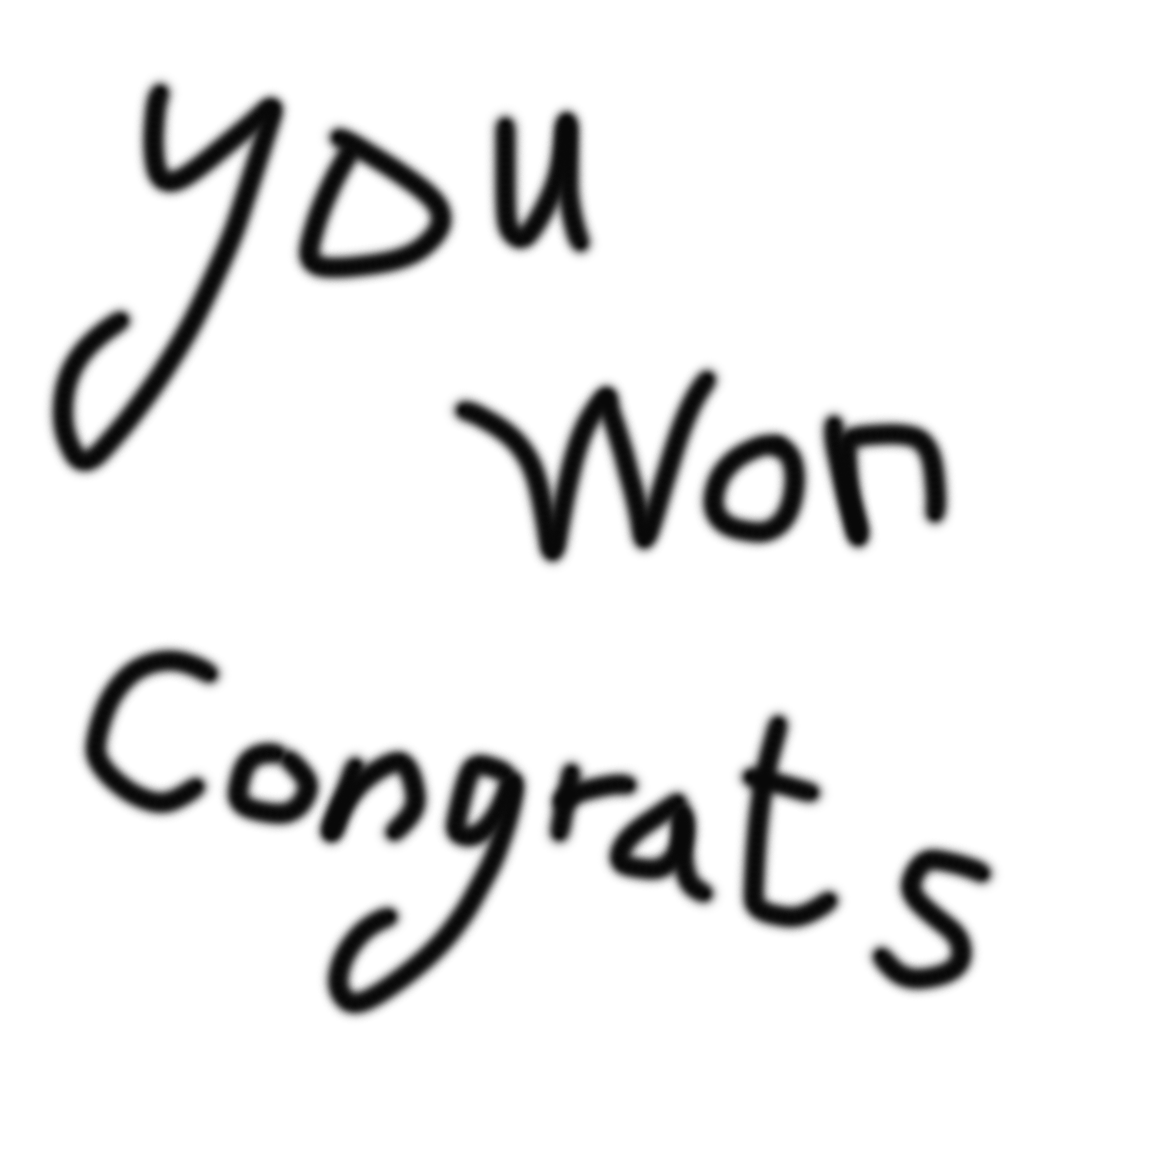 you
won
Congrats